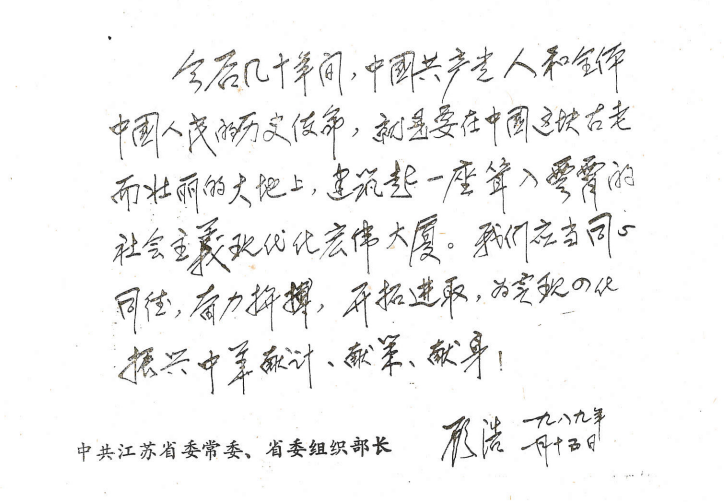 今后几十年间，中国共产党人和全体
中国人民的历史使命，就是要在中国这块古老
而壮丽的大地上，建筑起一座耸入雲霄的
社会主義现代化宏伟大厦。我们应当同心
同德，奋力拚搏，开拓进取，为实现四化
振兴中华献计、献策、献身！
中共江苏省委常委、省委组织部长
顾浩 一九八九年
一月十五日